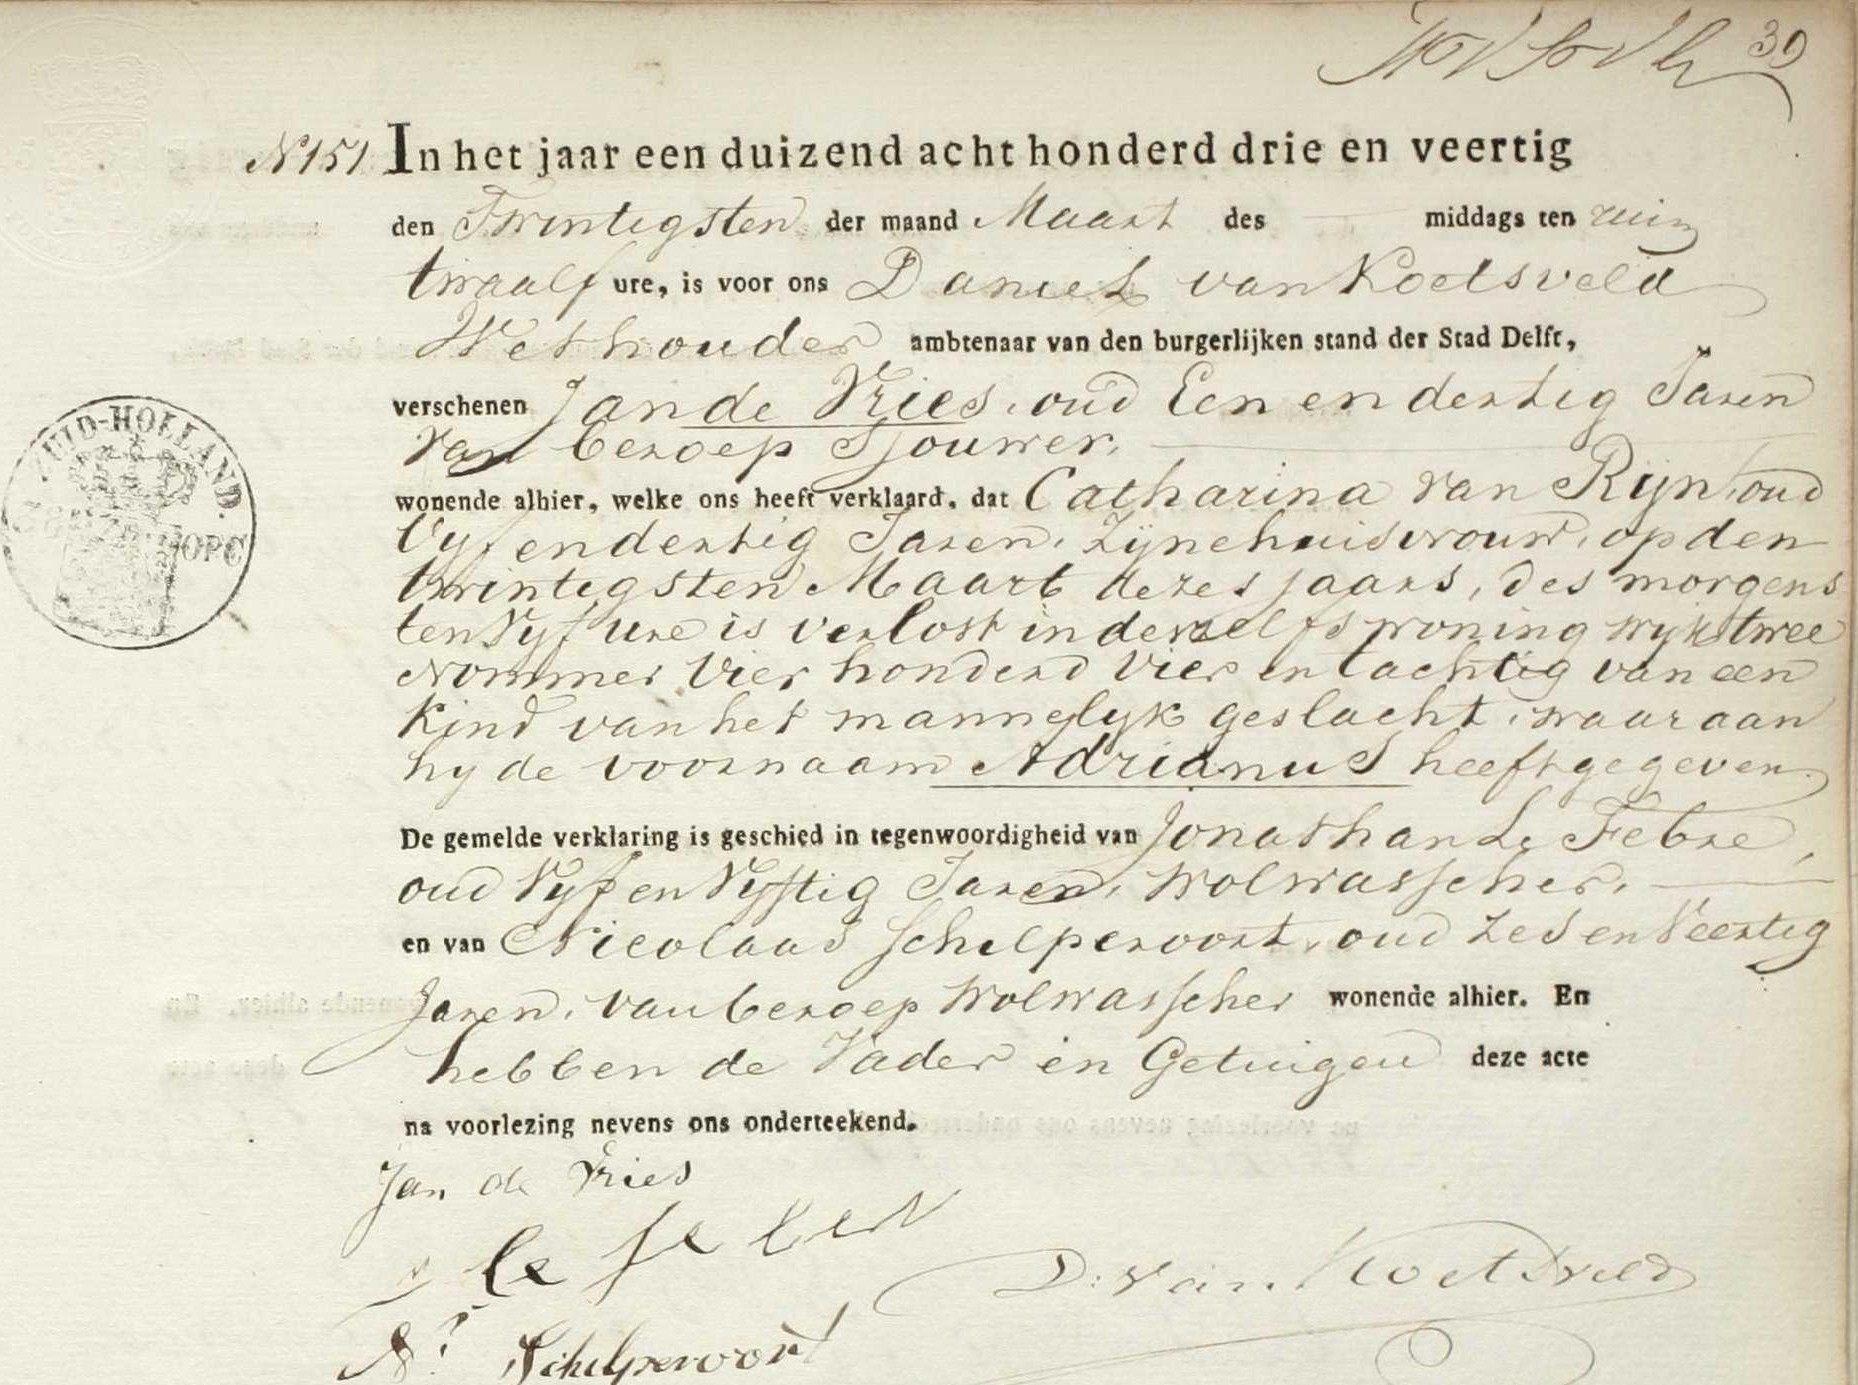 39
N 151 In het jaar een duizend acht honderd drie en veertig
den Twintigsten der maand Maart des middags ten ruim
twaalf ure, is voor ons Daniel van Koetsveld
Wethouder ambtenaar van den burgerlijken stand der Stad Delft,
verschenen Jan de Vries, oud Een en dertig Jaren
van beroep Sjouwer,
wonende alhier, welke ons heeft verklaard, dat Catharina van Rijn, oud
Vyf en dertig Jaren, zijne huisvrouw, op den
twintigsten Maart dezes jaars, des morgens
ten Vyf ure is verlost in derzelfs woning wijk twee
Nommer Vier honderd Vier en tachtig van een
Kind van het mannelyk geslacht, waaraan
hy de voornaam Adrianus heeft gegeven
De gemelde verklaring is geschied in tegenwoordigheid van Jonathan Le Febre,
oud Vyf en Vyftig Jaren, Wolwasscher,
en van Nicolaas Schelpervort, oud Zes en Veertig
Jaren, van beroep Wolwasscher wonende alhier. En
hebben de Vader en Getuigen deze acte
na voorlezing nevens ons onderteekend.
Jan de Vries
le feber
D: van Koetsveld
N: Schelpervoort
ZUID-HOLLAND.
OPC